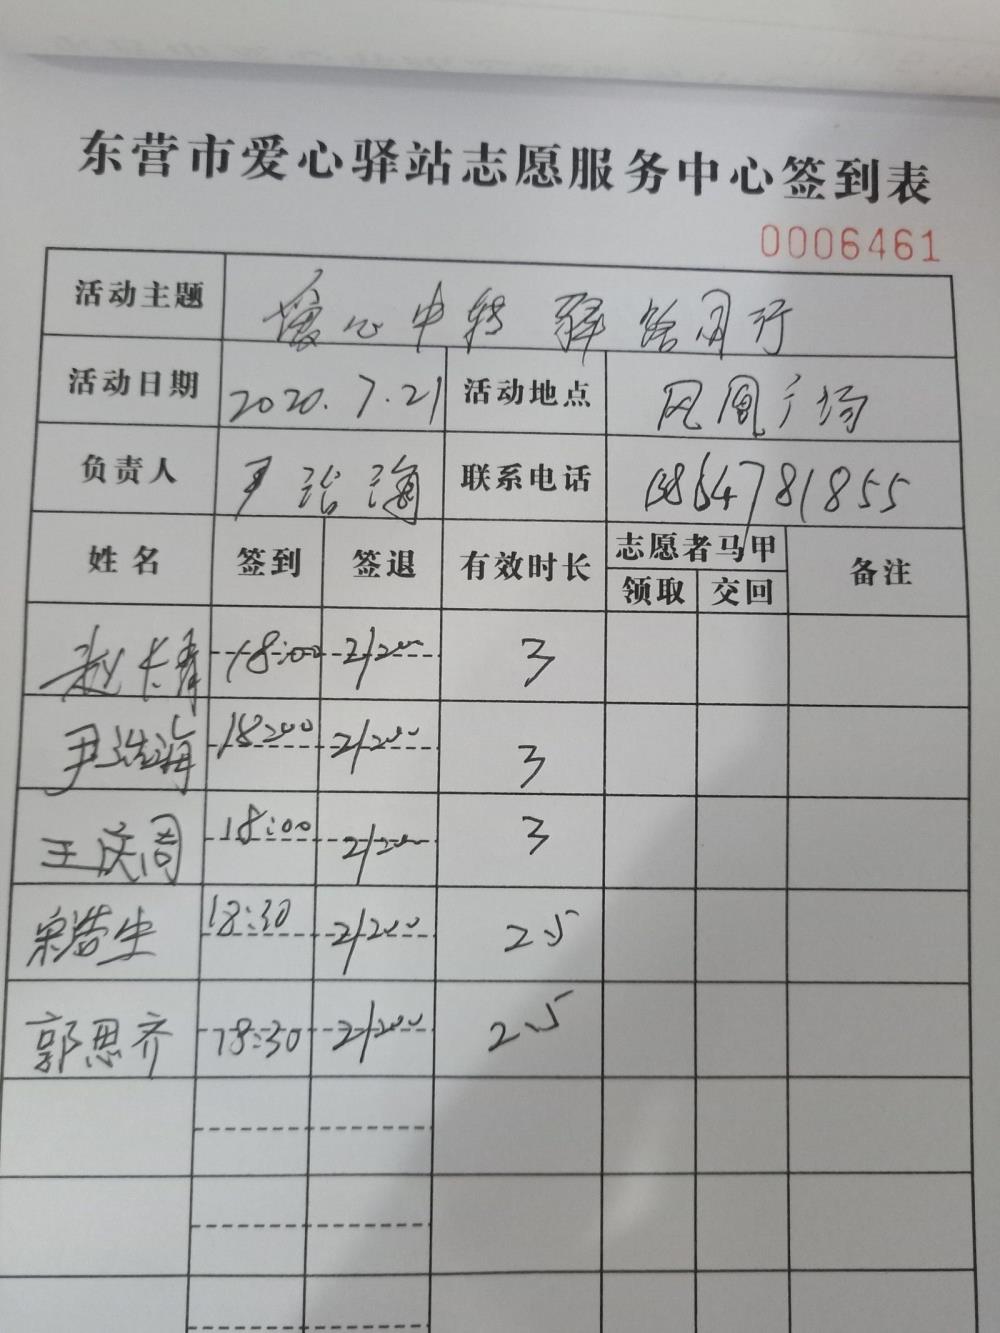 东营市爱心驿站志愿服务中心签到表
0006461
活动主题 爱心中转 驿路同行
活动日期 2020.7.21 活动地点 凤凰广场
负责人 尹治海 联系电话 13864781855
姓名 签到 签退 有效时长 志愿者马甲 备注
领取 交回
赵长青 18:00 21:00 3
尹治海 18:00 21:00 3
王庆周 18:00 21:00 3
宋浩生 18:30 21:00 2.5
郭思齐 18:30 21:00 2.5